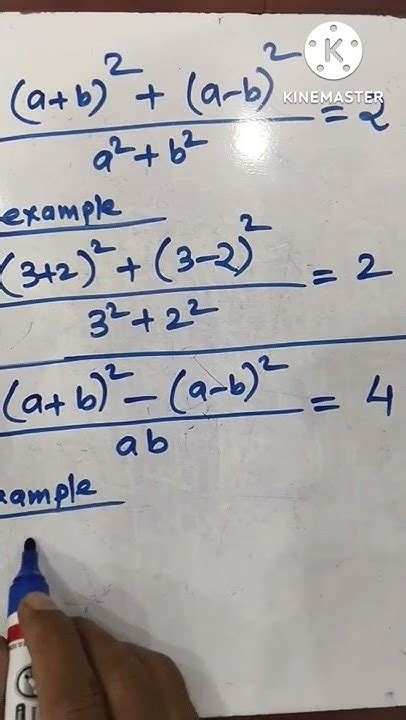 KINEMASTER
(a+b)² + (a-b)²
a²+b² = 2
example
(3+2)² + (3-2)²
3²+2² = 2
(a+b)² - (a-b)²
ab = 4
xample